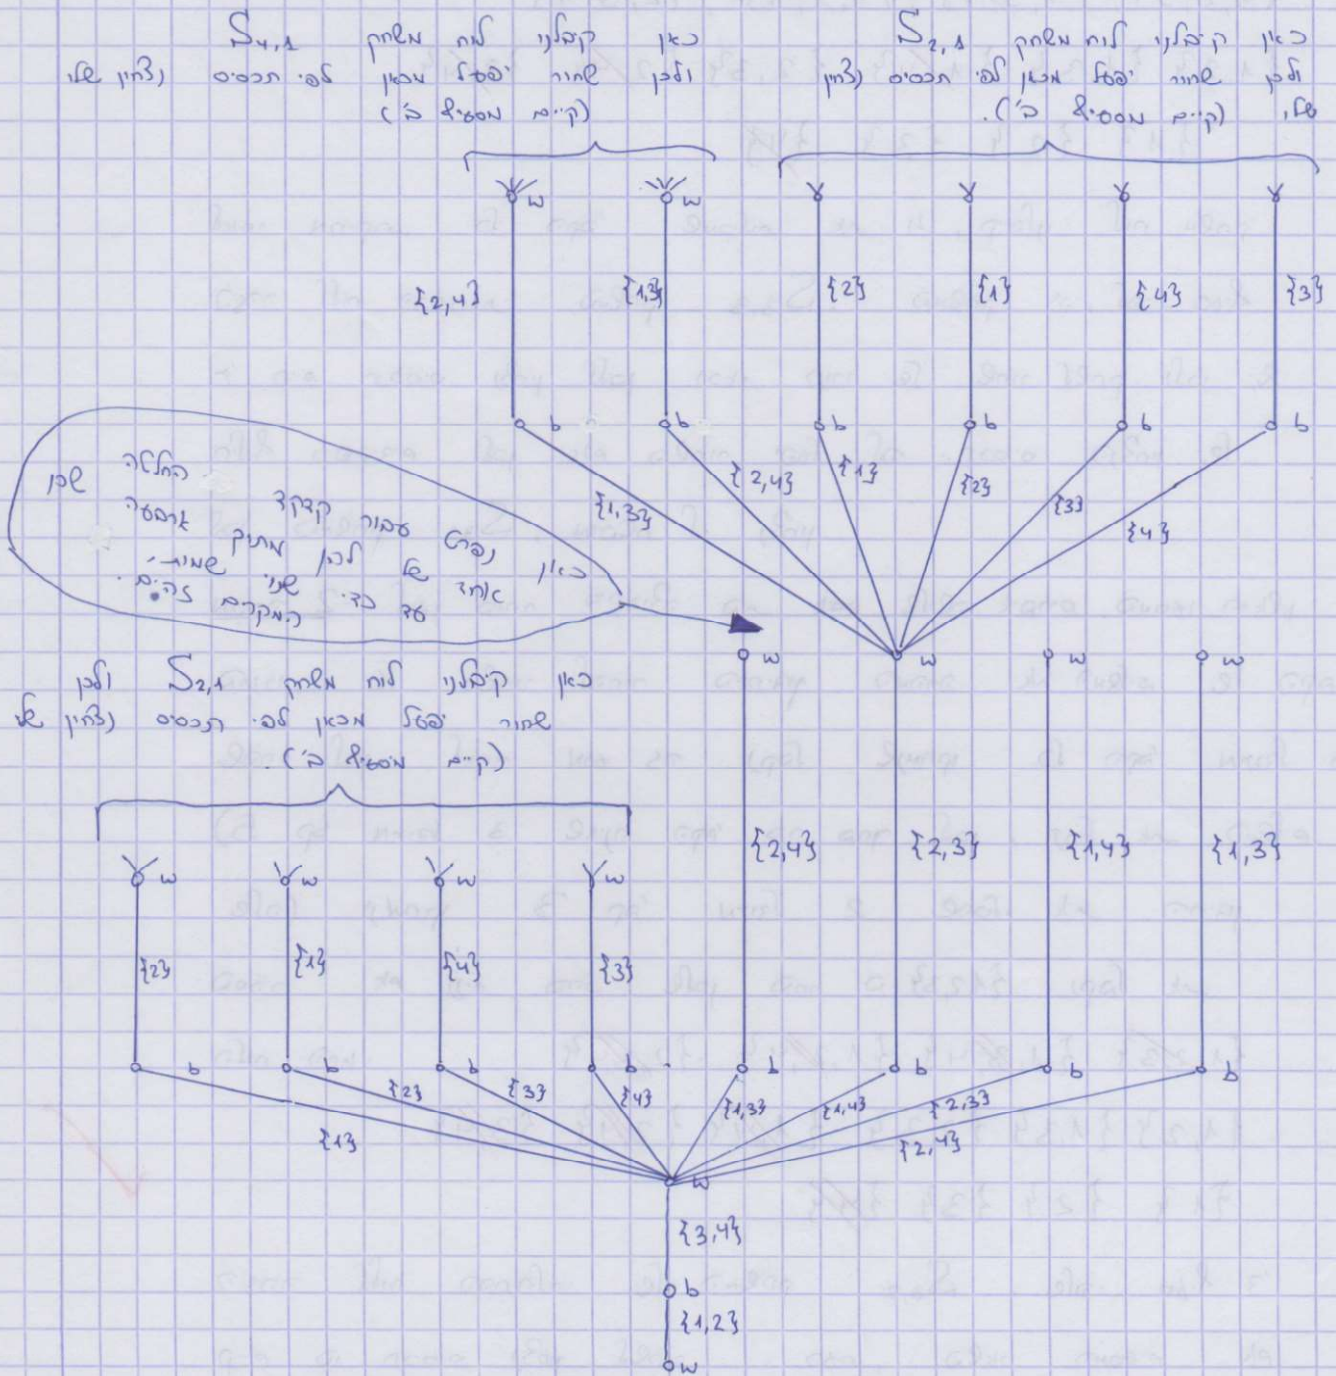 כאן קיבלנו לוח משחק S₂,₁
ולכן שחור יפעל מכאן לפי תכסיס ניצחון
שלו (קיים מסעיף ב').
כאן קיבלנו לוח משחק S₄,₁
ולכן שחור יפעל מכאן לפי תכסיס ניצחון שלו
(קיים מסעיף ב')
w w
{2,4} {1,3} {2} {1} {4} {3}
b b b b b b
{1,3} {2,4} {1} {2} {3} {4}
כאן נפרט עבור קדקד החלטה
אחד של לבן מתוך ארבעה שכן
עד כדי שינוי שמות,
המקרים זהים.
w w w w
כאן קיבלנו לוח משחק S₂,₁ ולכן
שחור יפעל מכאן לפי תכסיס ניצחון שלו
(קיים מסעיף ב').
{2,4} {2,3} {1,4} {1,3}
w w w w
{2} {1} {4} {3}
b b b b b b b b
{1} {2} {3} {4} {1,3} {1,4} {2,3} {2,4}
w
{3,4}
b
{1,2}
w